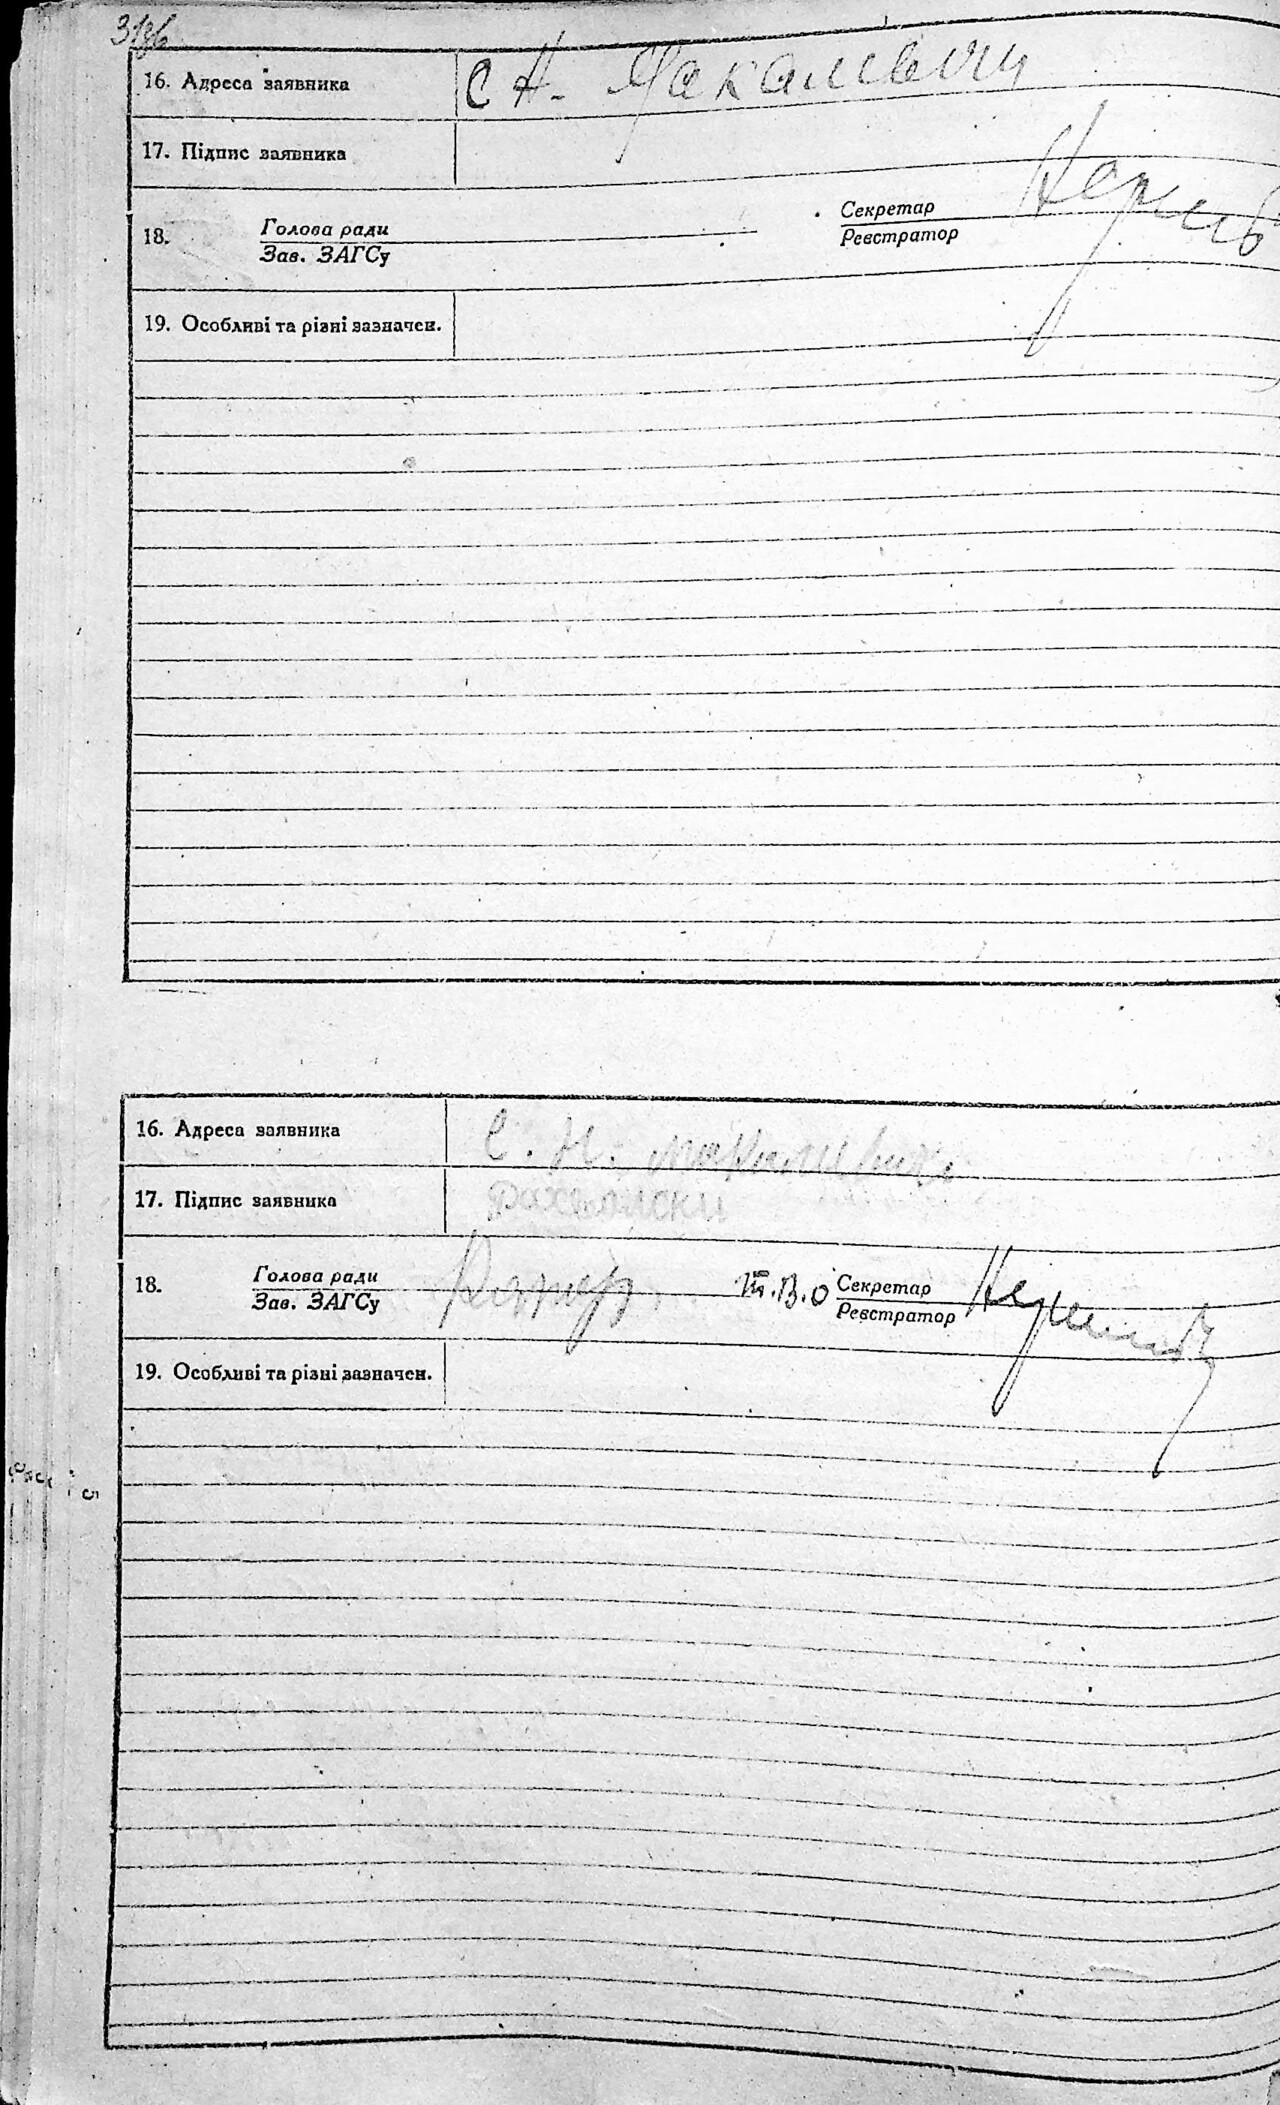 16. Адреса заявника С Н. Макалевичи
17. Підпис заявника
18. Голова ради Секретар
Зав. ЗАГСу Реєстратор
19. Особливі та різні зазначен.
16. Адреса заявника С. Н. Макалевичі
17. Підпис заявника
18. Голова ради т.в.о Секретар
Зав. ЗАГСу Реєстратор
19. Особливі та різні зазначен.